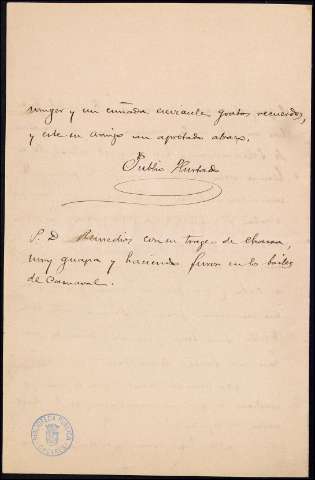 muger y un cuñada envianle gratos recuerdos,
y este su amigo un apretado abrazo.
Publio Hurtado
P. D. Remedios con su trage de charra,
muy guapa y haciendo furor en los bailes
de Carnaval.
BIBLIOTECA PUBLICA
CACERES